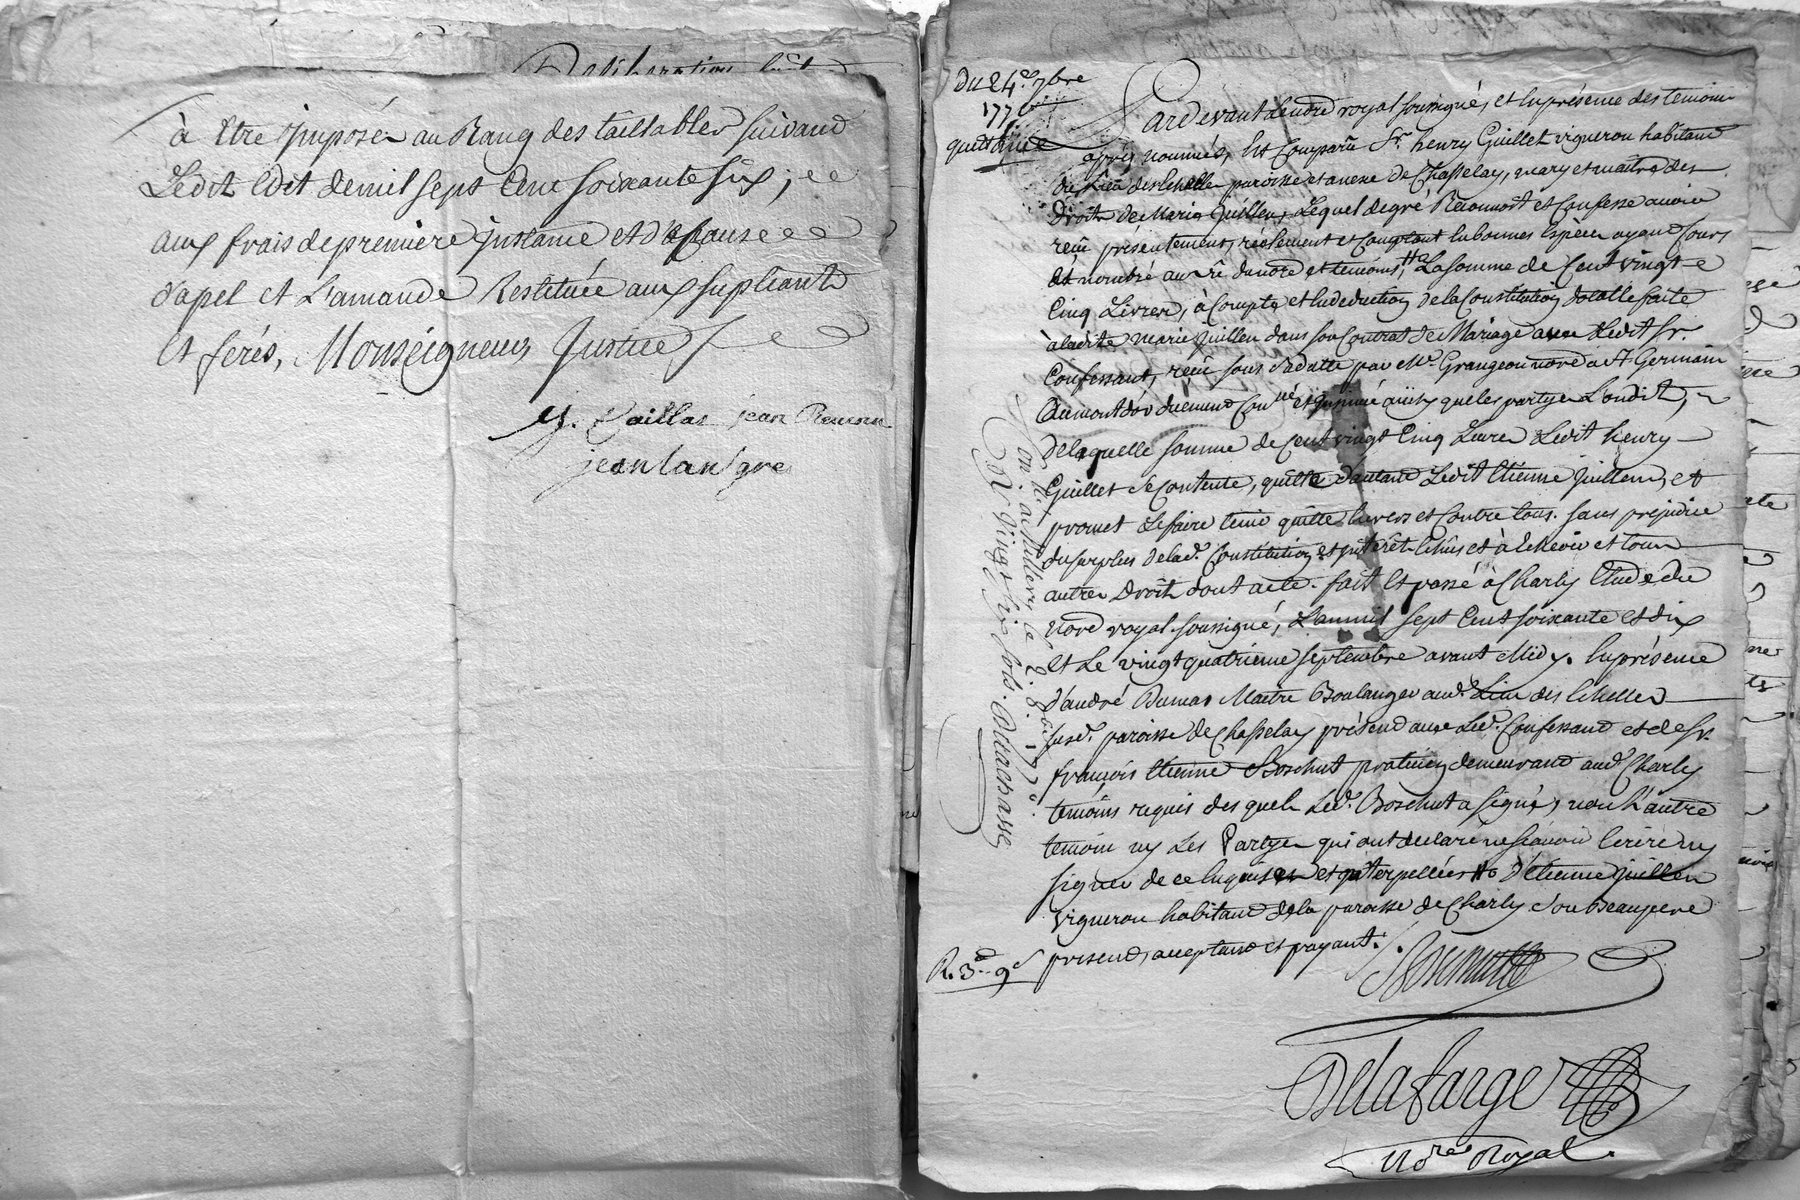 à Etre Imposér au Rang des taillables suivand
Ledit Edit de mil sept Cent soixante six ;
aux frais de premiere instance et d'
d'apel et L'amande Restituée aux supliants
et ferés, Monseigneur, Justice
jean
jean lansgre
Du 24e 7bre
1770
quittance
Pardevant le nore royal soussigné, et En présence des temoins
après nommés, Est Comparu Sr. henry Guillet vigneron habitant
du Lieu des Echelles paroisse et anexe de Chasselay, mary et maitre des
Droits de Marie Juillen, Lequel de gré Reconnoit et Confesse avoir
reçu présentement, réelement et comptant En bonnes Espèces ayant Cours
Et nombré au vû du nore et temoins, La somme de Cent vingt
Cinq Livres, à Compte et En deduction de la Constitution dotalle faite
à ladite Marie Juillen dans son Contrat de Mariage avec Ledit Sr.
Confessant, reçu sous sa datte par Me. Grangeon nore à St Germain
Au mont d'or duement Conné et Insinué ainsy que les partyes L'ondit,
de laquelle somme de Cent vingt Cinq Livres Ledit henry
Guillet se Contente, quitte d'autant Ledit Etienne Juillen, et
promet Le faire tenir quitte Envers et Contre tous. sans préjudice
du surplus de lad. Constitution et intérêt Echûs et à Echeoir et tous
autres Droits dont acte. fait et passé à Charly Etude du
nore royal soussigné, L'an mil sept Cent soixante et dix
et Le vingt quatrieme septembre avant Midy. En présence
d'andré Dumas Maitre Boulanger aud. Lieu des Echelles
susd. paroisse de Chasselay présend avec Led. Confessand et de Sr.
françois Etienne Boschut praticien demeurand aud. Charly
temoins requis des quels Led. Boschut a signé, non L'autre
temoin ny Les Partyes qui ont declaré ne sçavoir Ecrire ny
signer de ce Enquis et interpellées d'Etienne Juillen
vigneron habitand de la paroisse de Charly son beaupere
présend, acceptand et payant.
Con.lé à Millery, ce 8. 8bre 1770.
R. vingt six sols.
R. 3# 9s
Delafarge
Nore Royal.